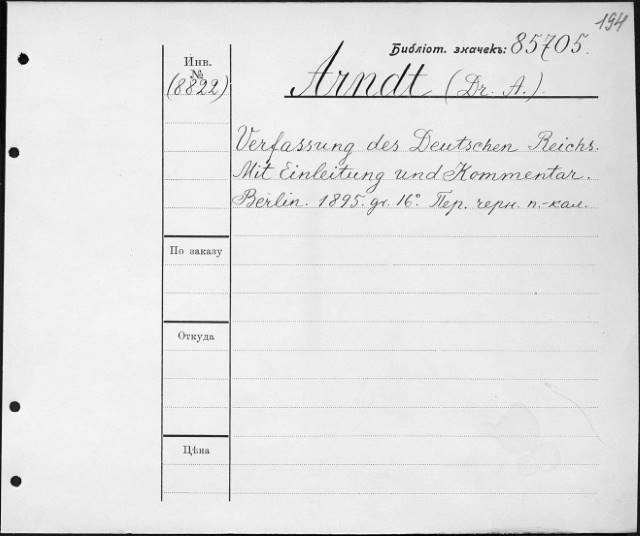 194
Библіот. значекъ: 85705.
Инв.
№
(8822)
Arndt (Dr. A.).
Verfassung des Deutschen Reichs.
Mit Einleitung und Kommentar.
Berlin. 1895. gr. 16° Пер. черн. п.-кал.
По заказу
Откуда
Цѣна